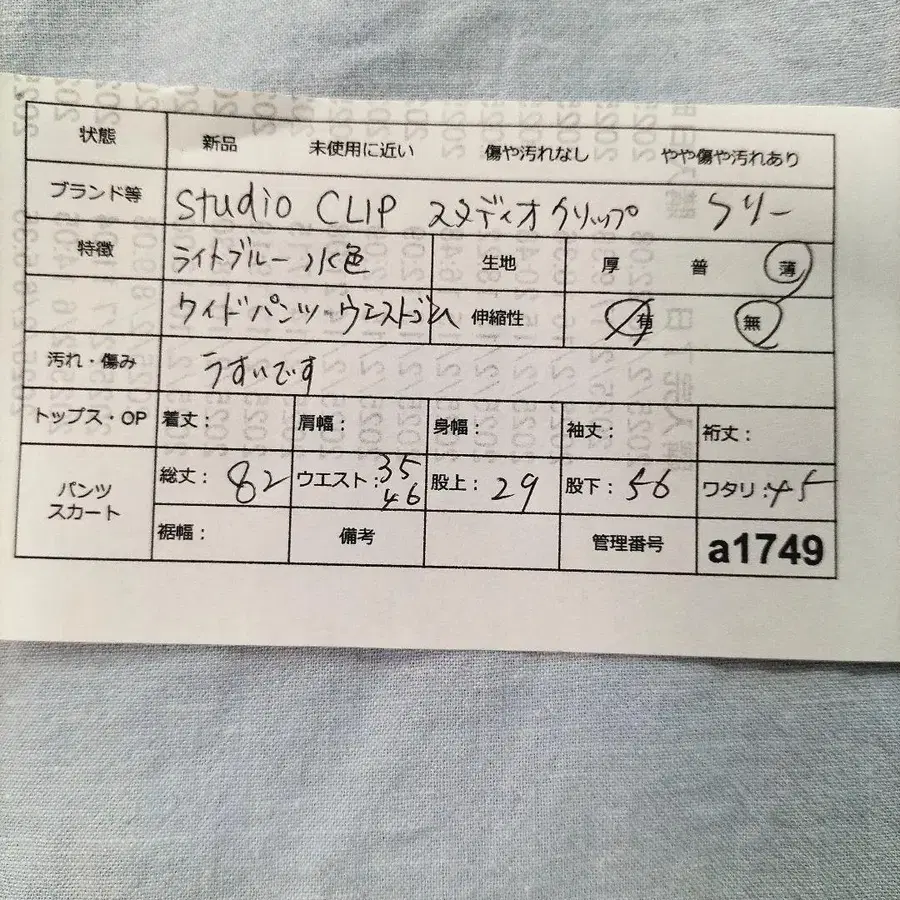 状態 新品 未使用に近い 傷や汚れなし やや傷や汚れあり
ブランド等 studio CLIP スタディオクリップ フリー
特徴 ライトブルー 水色 生地 厚 普 薄
ワイドパンツ ウエストゴム 伸縮性 有 無
汚れ・傷み うすいです
トップス・OP 着丈: 肩幅: 身幅: 袖丈: 裄丈:
パンツ スカート 総丈: 82 ウエスト: 35 46 股上: 29 股下: 56 ワタリ: 45
裾幅: 備考 管理番号 a1749